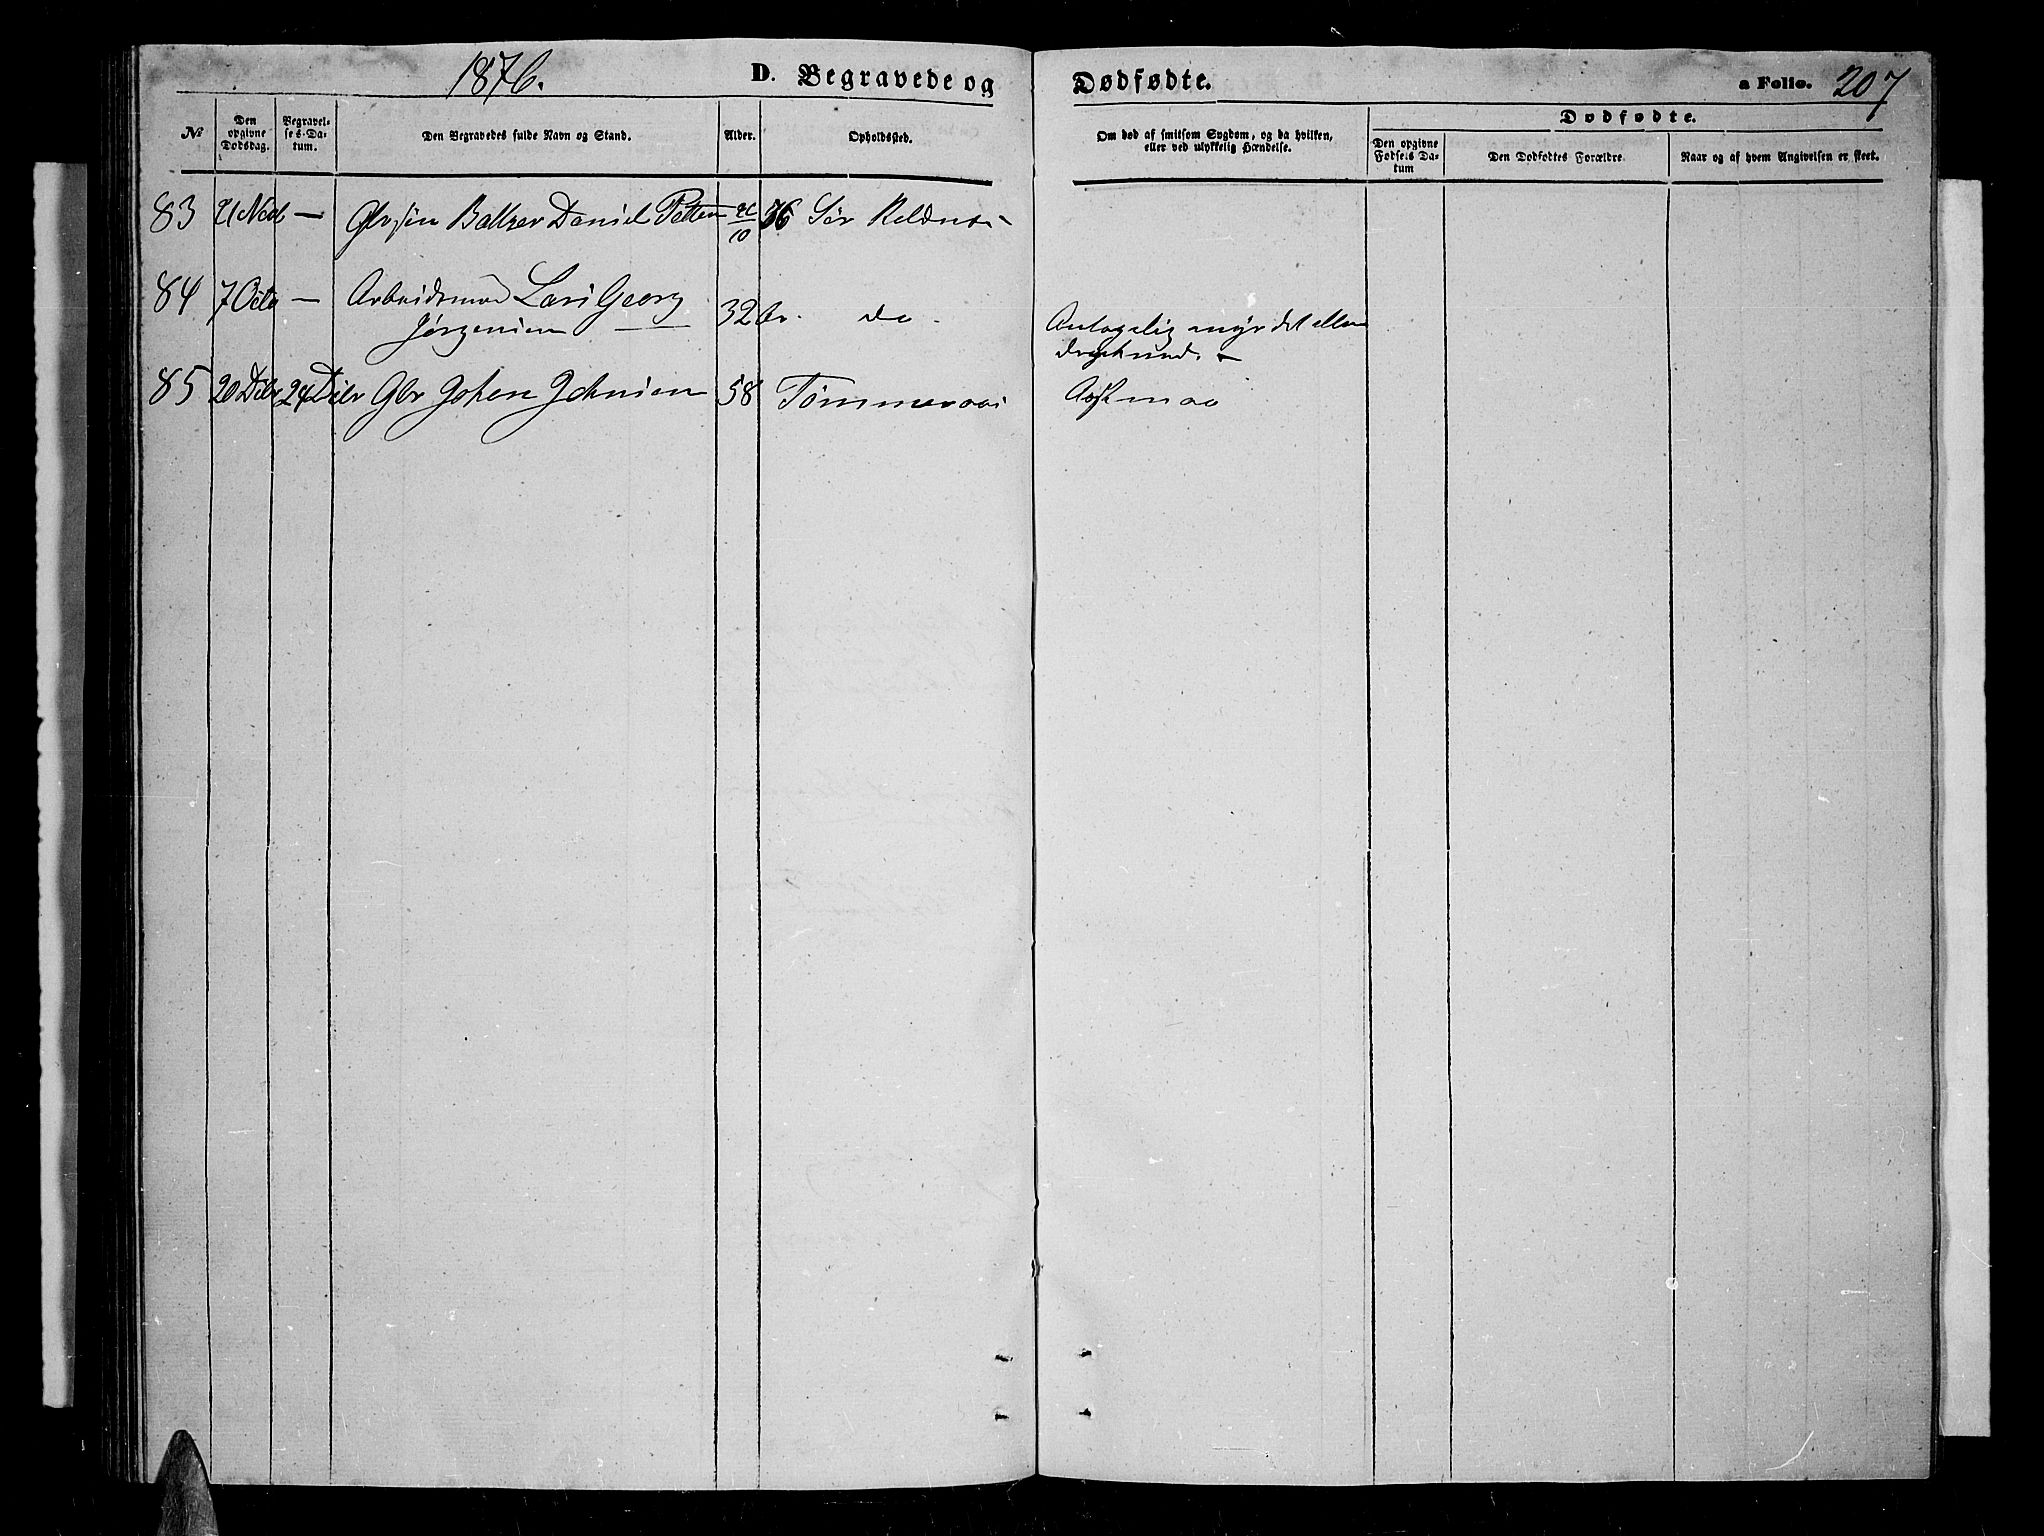 1876. D. Begravede og Dødfødte. a Folio. 207
Dødfødte.
№ Den opgivne Dødsdag. Begravelses-Datum. Den Begravedes fulde Navn og Stand. Alder. Opholdssted. Om død af smitsom Sygdom, og da hvilken, eller ved ulykkelig Hændelse. Den opgivne Fødsels Datum Den Dødfødtes Forældre. Naar og af hvem Angivelsen er skeet.
83 21 — Baltzer Daniel 26/10 76 Sør
84 7 Octo — Arbeidsmd Lars Georg
Jørgensen — 32 Ar. do - Antagelig myrdet eller
druknet. —
85 20 Dcbr 24 Dcbr Gbr Johan Johnsen 58 Tømmeraas Astmaa